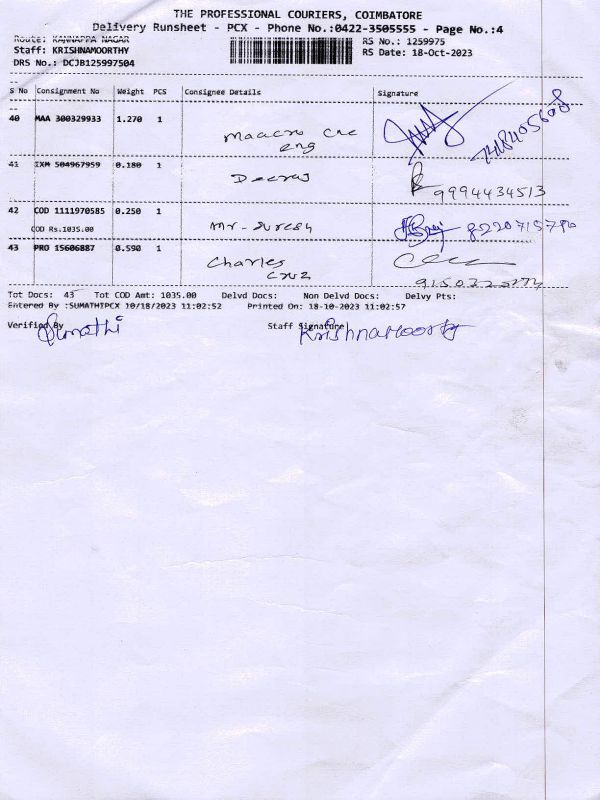 THE PROFESSIONAL COURIERS, COIMBATORE
Delivery Runsheet - PCX - Phone No.:0422-3505555 - Page No.:4
Route: KANNAPPA NAGAR RS No.: 1259975
Staff: KRISHNAMOORTHY RS Date: 18-Oct-2023
DRS No.: DCJB125997504
S No Consignment No Weight PCS Consignee Details Signature
40 MAA 300329933 1.270 1
Maacro cnc
eng
7418405608
41 IXM 504967959 0.180 1
9994434513
42 COD 1111970585 0.250 1
COD Rs.1035.00 Mr-Suresh
43 PRO 15606887 0.590 1
Charles
cruz
Tot Docs: 43 Tot COD Amt: 1035.00 Delvd Docs: Non Delvd Docs: Delvy Pts:
Entered By :SUMATHIPCX 10/18/2023 11:02:52 Printed On: 18-10-2023 11:02:57
Verified By Sumathi Staff Signature Krishnamoorthy